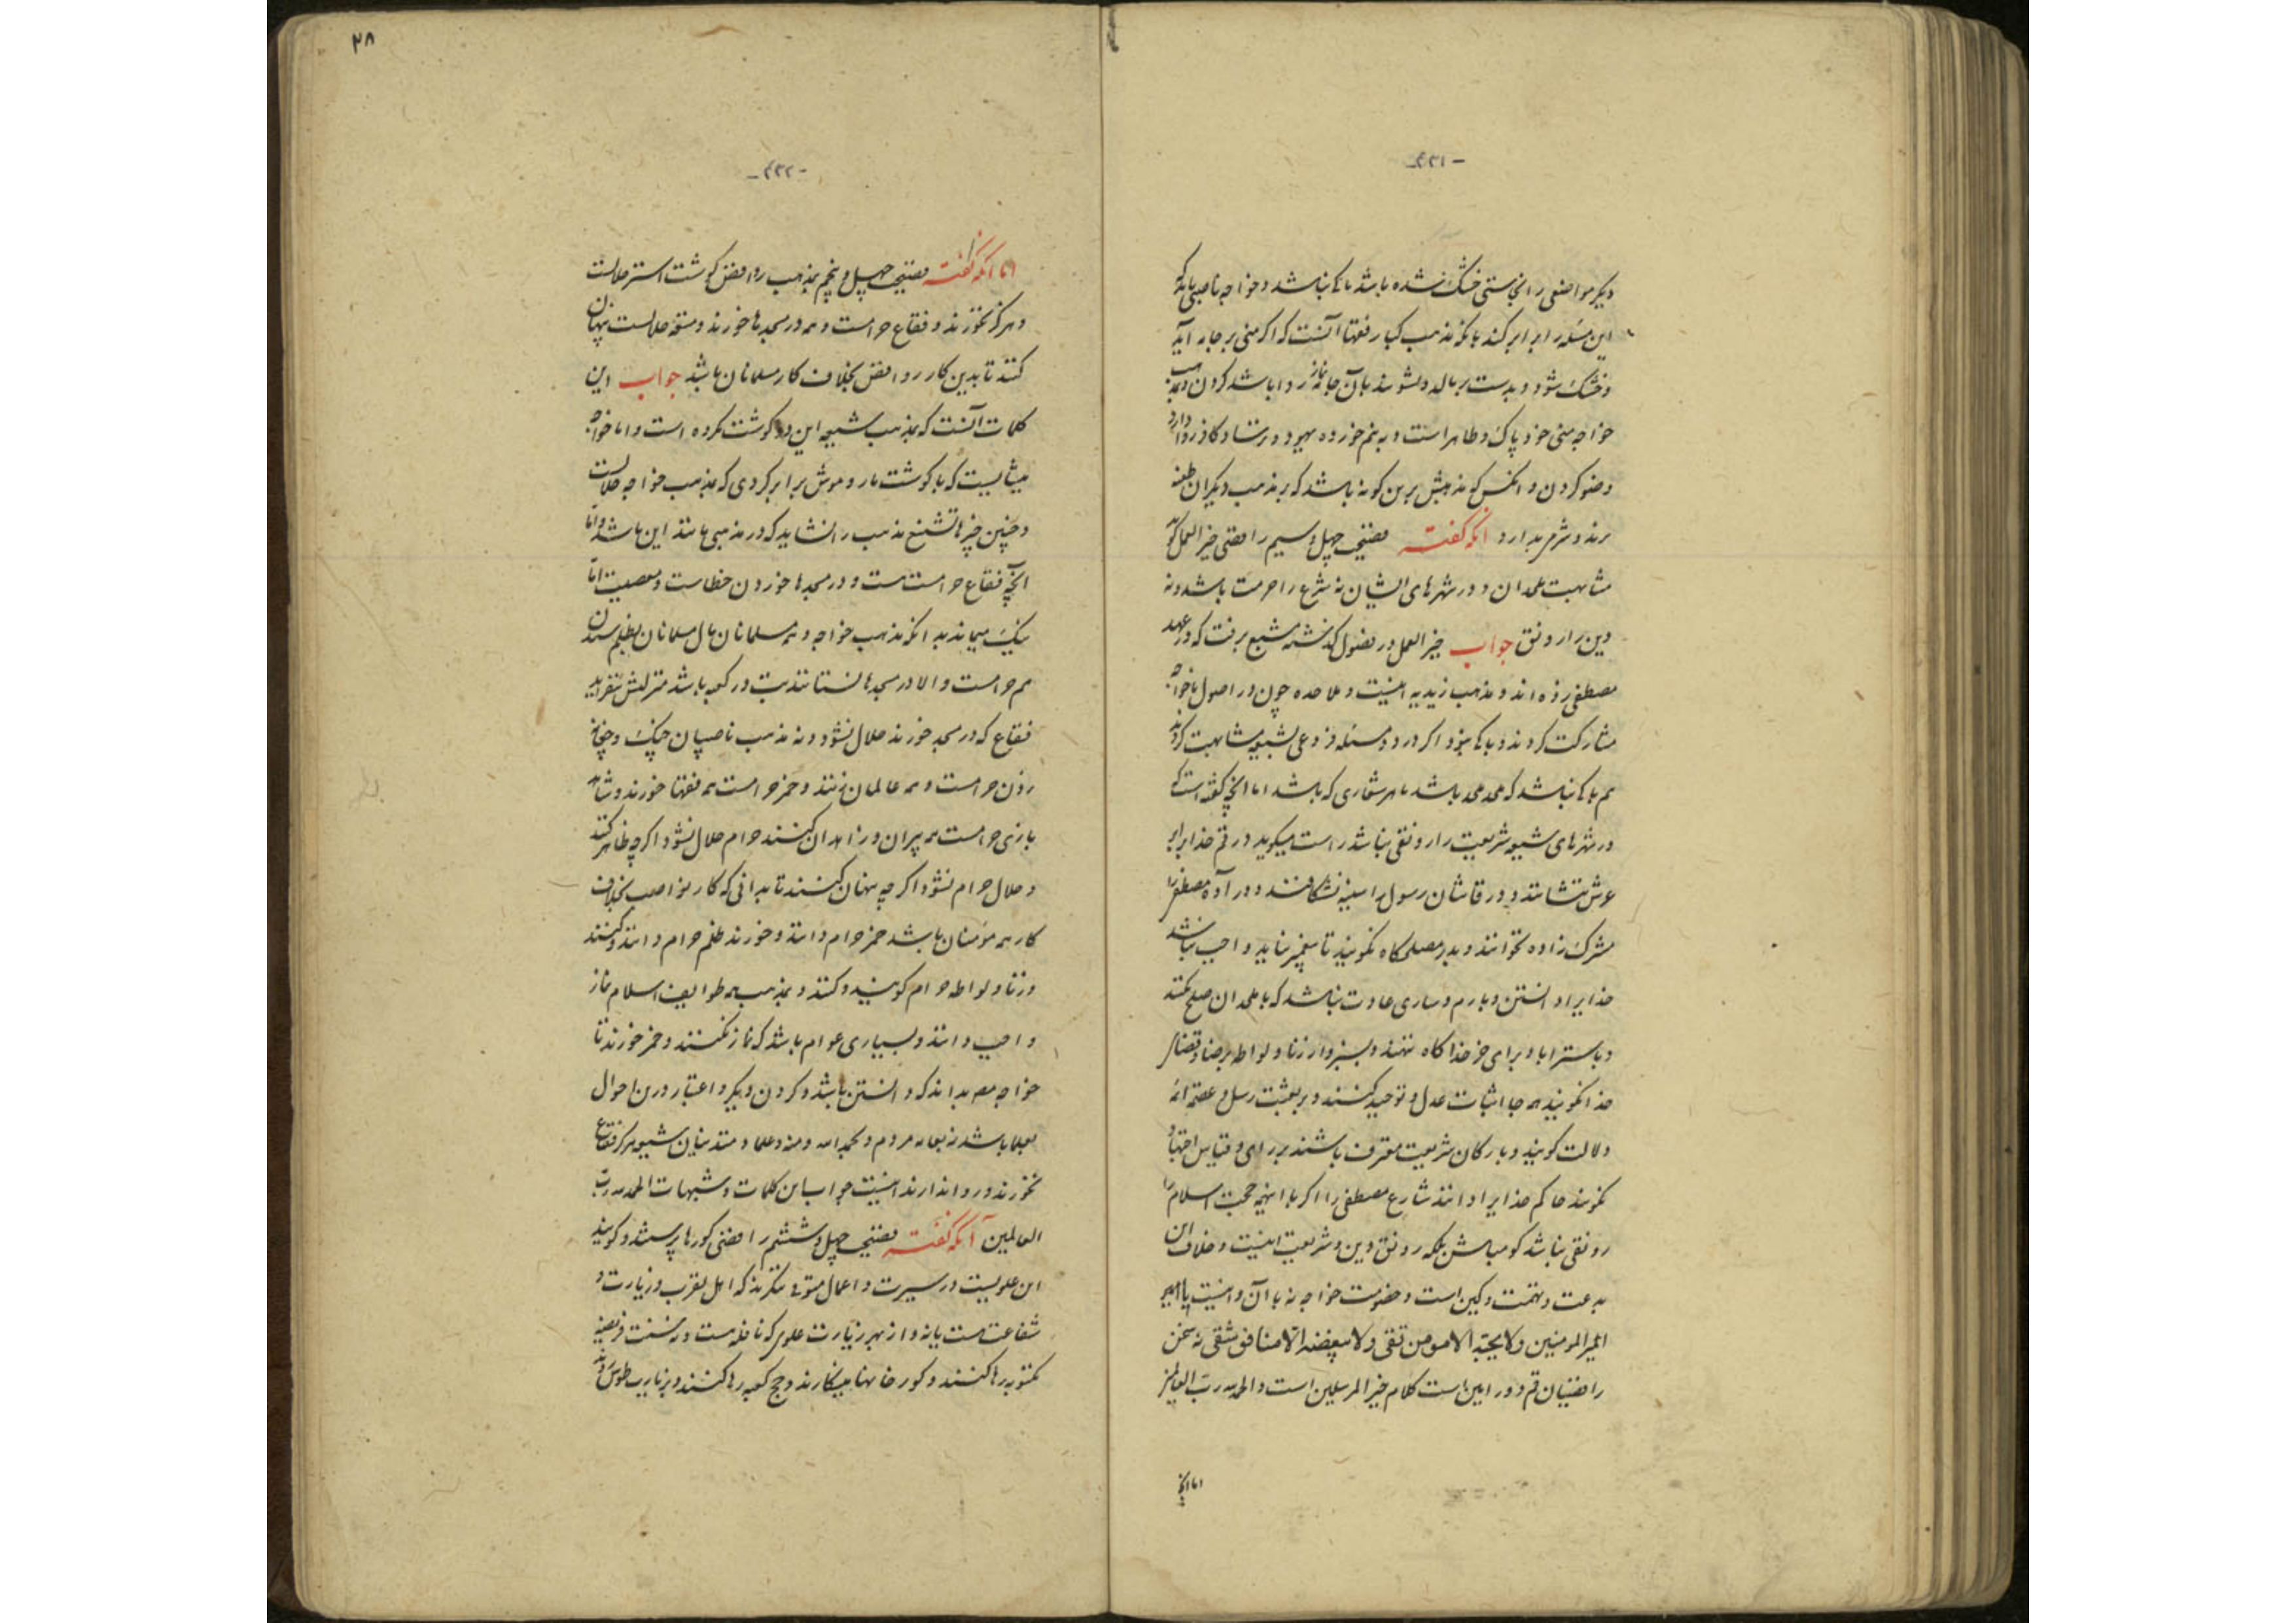 - ۴۳۱ -
دیگر مواضعی را نجاستی خشک شده باشد باکی نباشد و خواجه ناصبی باید که
این مسئله را برابر کند بآنکه مذهب کبار فقها آنست که اگر منی بر جامه آید
و خشک شود و بدست بر مالد و بشویند بآن جامه نماز روا باشد کردن و بمذهب
خواجه منی خود پاک و طاهر است و به نیم خورده یهود و ترسا و کافر روا دارد
وضو کردن و آنکس که مذهبش برین گونه باشد که بر مذهب دیگران طعنه
زند و شرم ندارد آنکه گفته فضیحت چهل و سیم رافضی خیر العمل گوید
مشابهت ملحدان و در شهرهای ایشان نه شرع را حرمت باشد و نه
دین را رونق جواب خیر العمل در فصول گذشته مشبع برفت که در عهد
مصطفی زده اند و مذهب زیدیه اینست و ملاحده چون در اصول با خواجه
مشارکت کردند و باکی نبود اگر در دو مسئله فروعی بشیعه مشابهت کردند
هم باکی نباشد که ملحد ملحد باشد بهر شعاری که باشد اما آنچه گفته است که
در شهرهای شیعه شریعت را رونقی نباشد راست میگوید در قم خدایرا بر
عرش ننشانند و در قاشان رسول را سینه نشکافند و در آوه مصطفی را
مشرک زاده نخوانند و بدر مصلحکاه نگویند تا پیغمبر نیاید واجب نباشد
خدایرا دانستن و بارم و ساری عادت نباشد که با ملحدان صلح کنند
و باستراباد برای خر خدا کاه ننهند و بسبزوار زنا و لواطه برضا و قضای
خدا نگویند همه جا اثبات عدل و توحید کنند و بر بعثت رسل و عصمة ائمه
دلالت گویند و بارکان شریعت معترف باشند بر رای و قیاس و اجتهاد
نگویند حاکم خدایرا دانند شارع مصطفی را اگر با اینهمه حجت اسلام را
رونقی نباشد گو مباش بلکه رونق دین و شریعت اینست و خلاف این
بدعت و تهمت و کین است و خصومت خواجه نه با آن و اینست با امیر
امیر المومنین و لا یحبه الا مومن تقی و لا یبغضه الا منافق شقی نه سخن
رافضیان قم و ورامین است کلام خیر المرسلین است و الحمد لله رب العالمین
اما آنچه
۲۸
- ۴۳۲ -
اما آنکه گفته فضیحت چهل و پنجم بمذهب روافض گوشت استر حلالست
و هرگز نخورند و فقاع حرامست و همه در مسجدها خورند و متعه حلالست پنهان
کنند تا بدین کار روافض بخلاف کار مسلمانان باشد جواب این
کلمات آنست که بمذهب شیعه این دو گوشت مکروه است و اما خواجه
میبایست که با گوشت مار و موش برابر کردی که بمذهب خواجه حلالست
و چنین چیزها تشنیع مذهب را نشاید که در مذهبی مانند این باشد و اما
آنچه فقاع حرامست هست و در مسجدها خوردن خطاست و معصیت اما
نیک میماند به آنکه مذهب خواجه و همه مسلمانان مال مسلمانان بظلم ستدن
هم حرامست و الا در مسجدها نستانند بت در کعبه باشد منزلتش نیفزاید
فقاع که در مسجد خورند حلال نشود و نه مذهب ناصبیان چنگ و چغانه
زدن حرامست و همه عالمان زنند و خمر حرامست همه فقها خورند و شاهد
بازی حرامست همه پیران و زاهدان کنند حرام حلال نشود اگر چه ظاهر کنند
و حلال حرام نشود اگر چه پنهان کنند تا بدانی که کار نواصب بخلاف
کار همه مؤمنان باشد خمر حرام دانند و خورند ظلم حرام دانند و کنند
و زنا و لواطه حرام گویند و کنند و بمذهب همه طوایف اسلام نماز
واجب دانند و بسیاری عوام باشد که نماز نکنند و خمر خورند تا
خواجه بداند که دانستن باشد و کردن دیگر و اعتبار درین احوال
بعلما باشد نه بعامه مردم و بحمد الله و منه علما و متدینان شیعه هرگز فقاع
نخورند و روا ندارند اینست جواب این کلمات و شبهات الحمد لله رب
العالمین آنکه گفته فضیحت چهل و ششم رافضی گورها پرستند و گویند
این علویست در سیرت و اعمال متوفی ننگرند که اهل تقرب و زیارت و
شفاعت هست یا نه و از بهر زیارت علوی که نافله است و نه سنت فریضه
مکتوبه رها کنند و گورخانها مینگارند و حج کعبه رها کنند و بزیارت طوس روند